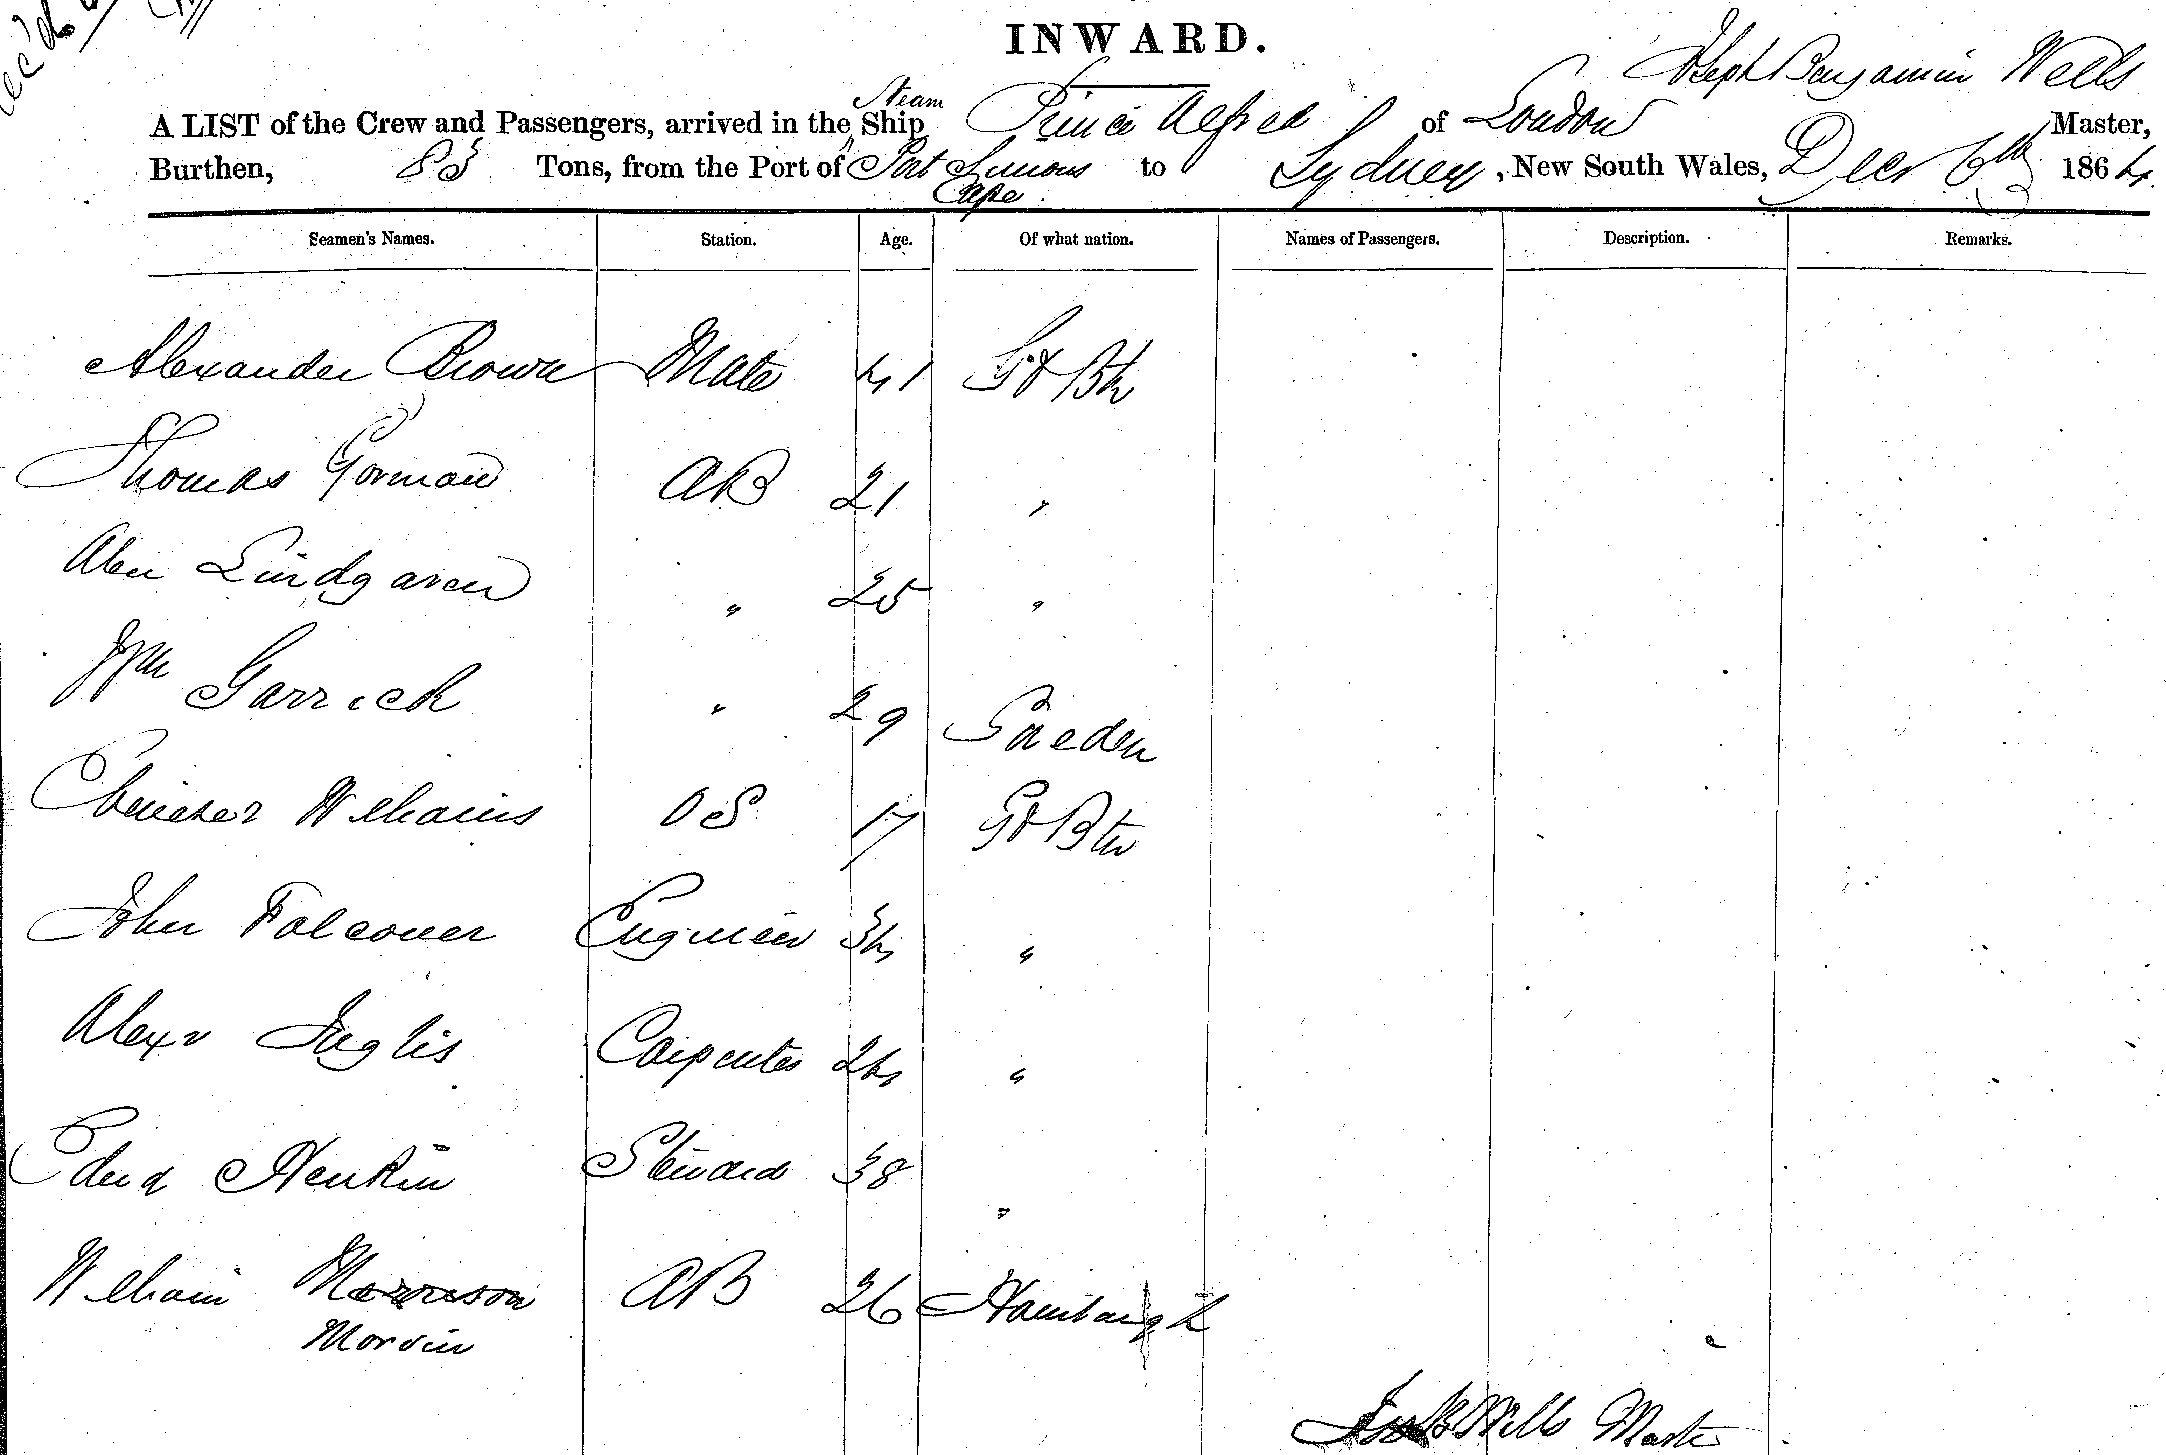 INWARD.
Joseph Benjamin Wells
A LIST of the Crew and Passengers, arrived in the Steam Ship Prince Alfred of London Master,
Burthen, 83 Tons, from the Port of Port Simons Cape to Sydney, New South Wales, Decr 6th 1864.
Seamen's Names. Station. Age. Of what nation. Names of Passengers. Description. Remarks.
Alexander Brown Mate 41 Gt Btn
Thomas Gorman AB 21 "
Alex Lindgaren " 25 "
Wm Garrick " 29 Sweden
Ebenezer Williams OS 17 Gt Btn
John Falconer Engineer 34 "
Alexr Inglis Carpenter 24 "
Edwd Henkin Steward 38 "
William Morrison AB 26 Hamburgh
Morvin
Wells Master